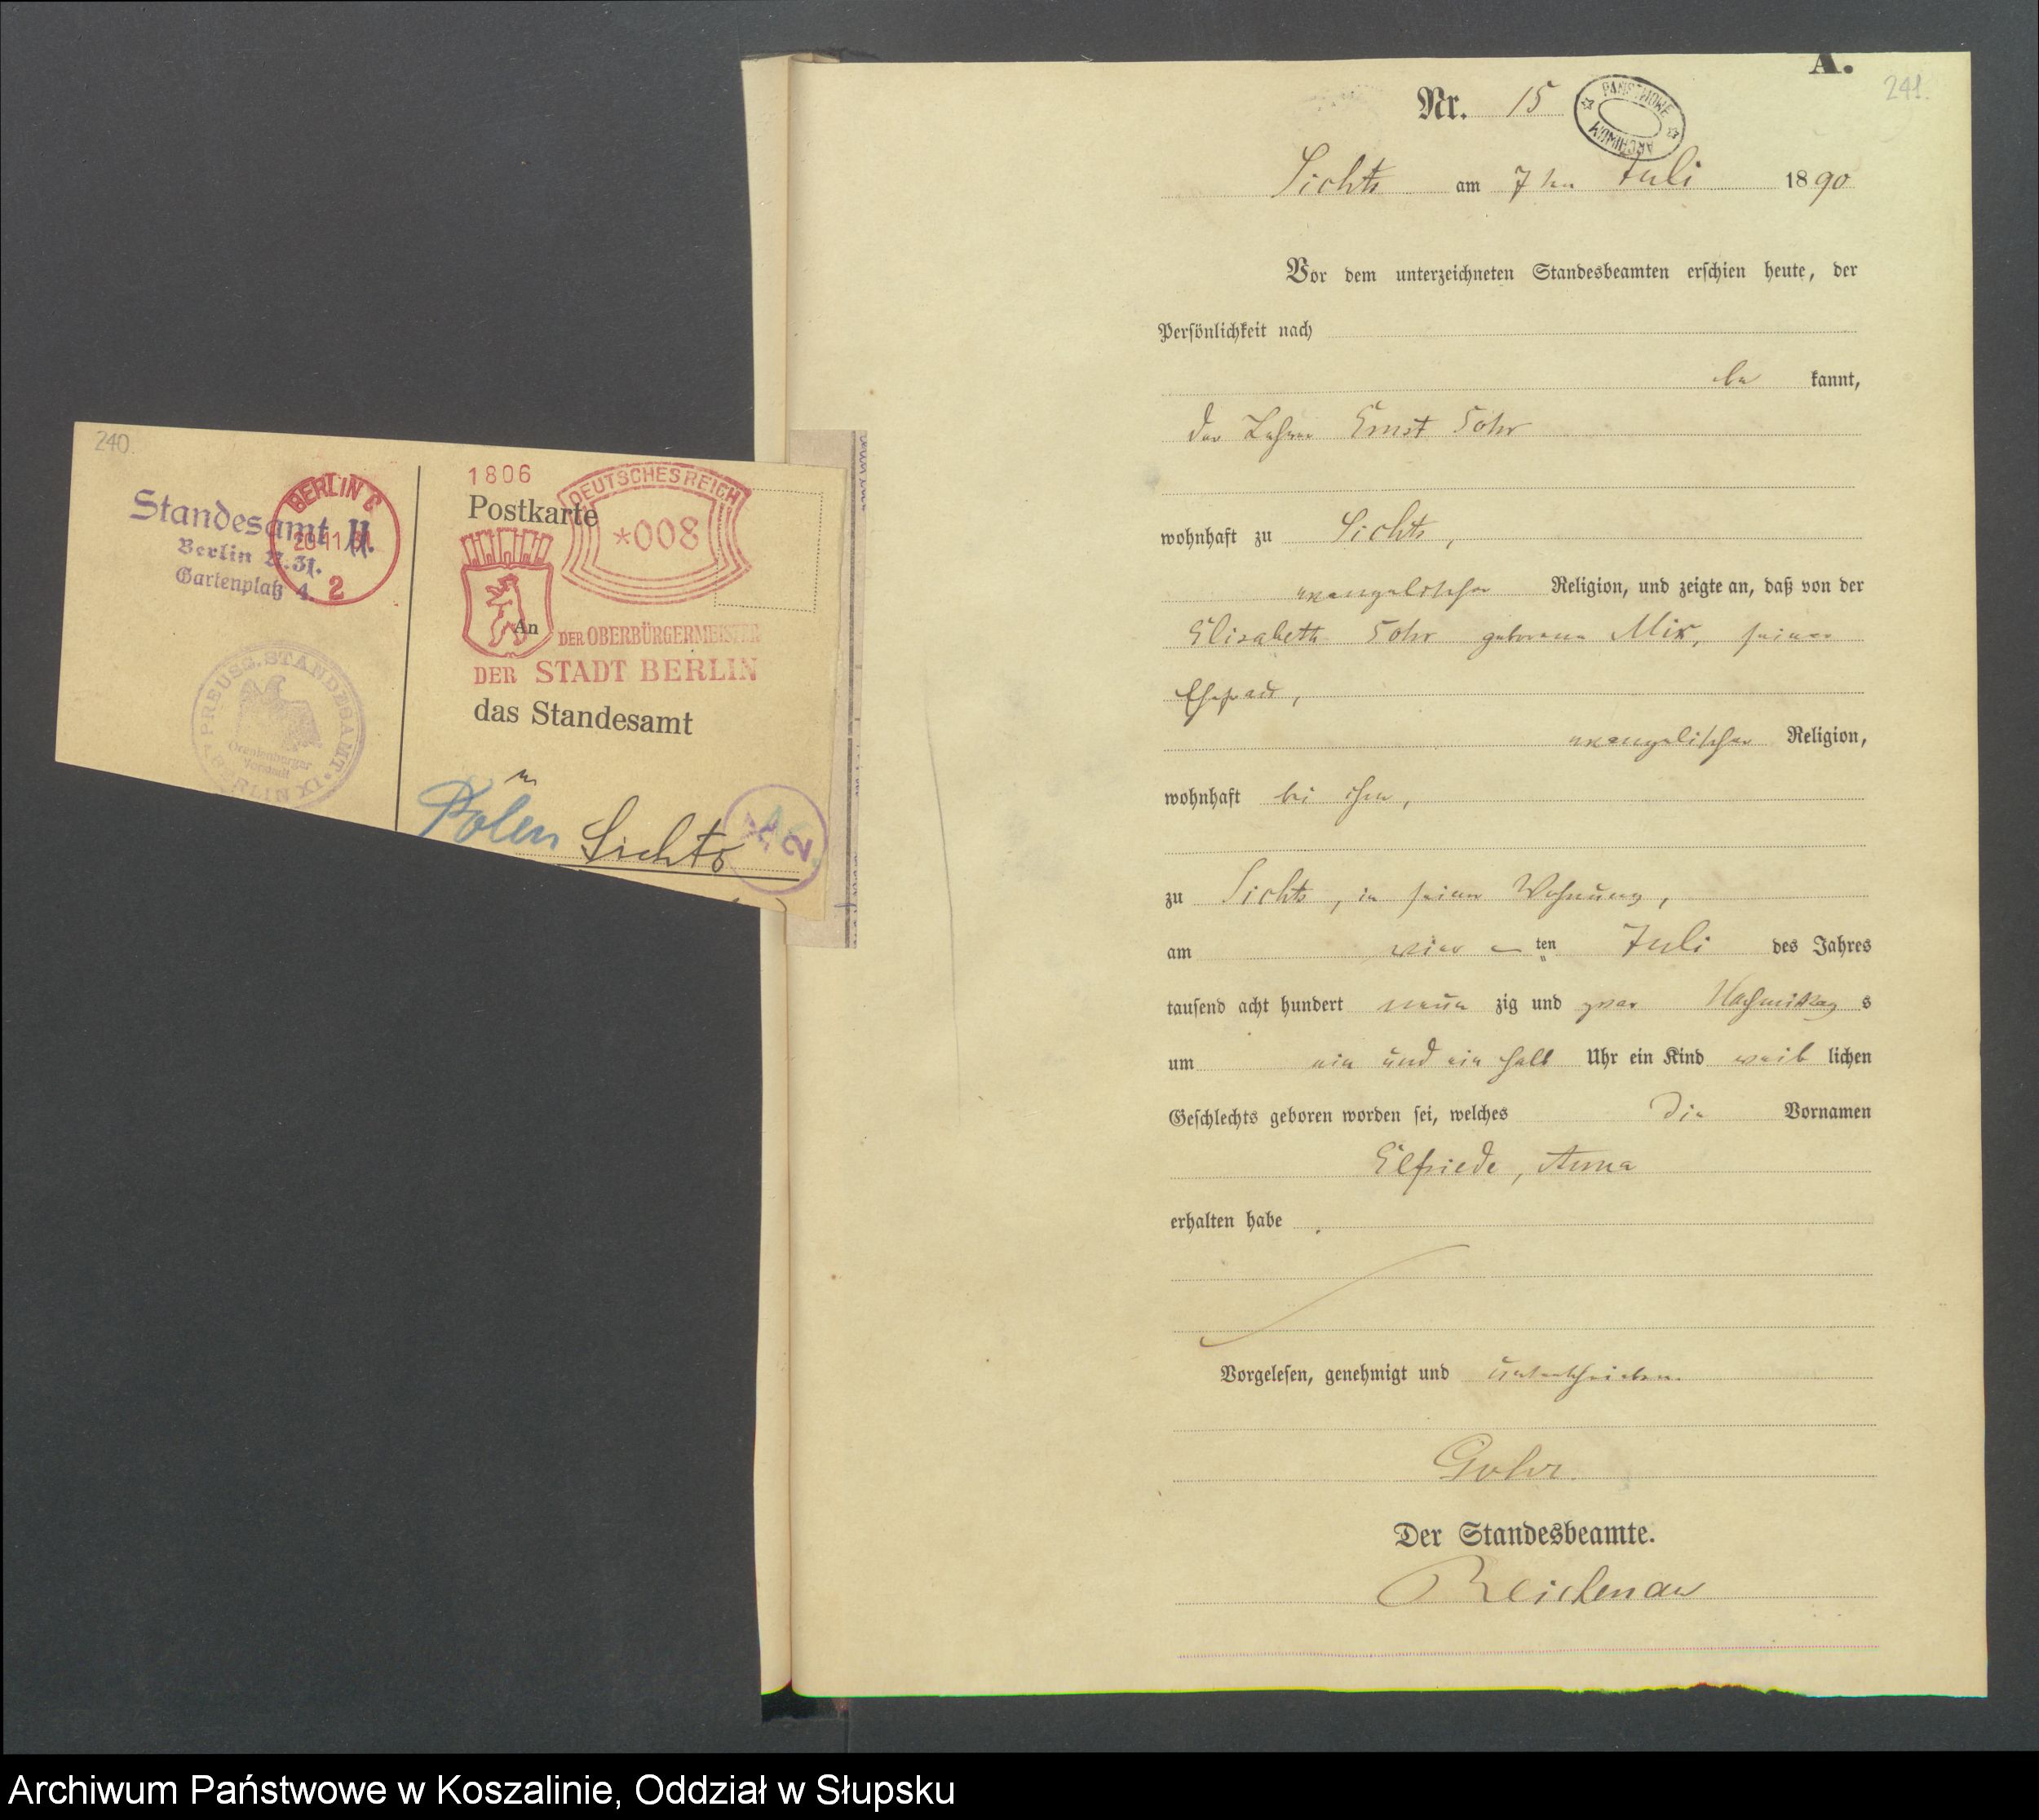 240.
Standesamt II.
Berlin N.31.
Gartenplatz 4.
BERLIN C
2
PREUSS. STANDESAMT IX
BERLIN
Oranienburger
Vorstadt
1806
Postkarte
DEUTSCHES REICH
*008
An
DER OBERBÜRGERMEISTER
DER STADT BERLIN
das Standesamt
in
Polen Lichts
A.
241.
Nr. 15
PAŃSTWOWE ARCHIWUM
Lichts am 7ten Juli 1890
Vor dem unterzeichneten Standesbeamten erschien heute, der
Persönlichkeit nach
be kannt,
der Lehrer Ernst Gohr
wohnhaft zu Lichts,
evangelischer Religion, und zeigte an, daß von der
Elisabeth Gohr geborene Mix, seiner
Ehefrau,
evangelischer Religion,
wohnhaft bei ihm,
zu Lichts, in seiner Wohnung,
am vier ten Juli des Jahres
tausend acht hundert neun zig und zwar Nachmittag s
um ein und ein halb Uhr ein Kind weib lichen
Geschlechts geboren worden sei, welches die Vornamen
Elfriede, Anna
erhalten habe .
Vorgelesen, genehmigt und unterschrieben.
Gohr.
Der Standesbeamte.
Reichenau
Archiwum Państwowe w Koszalinie, Oddział w Słupsku